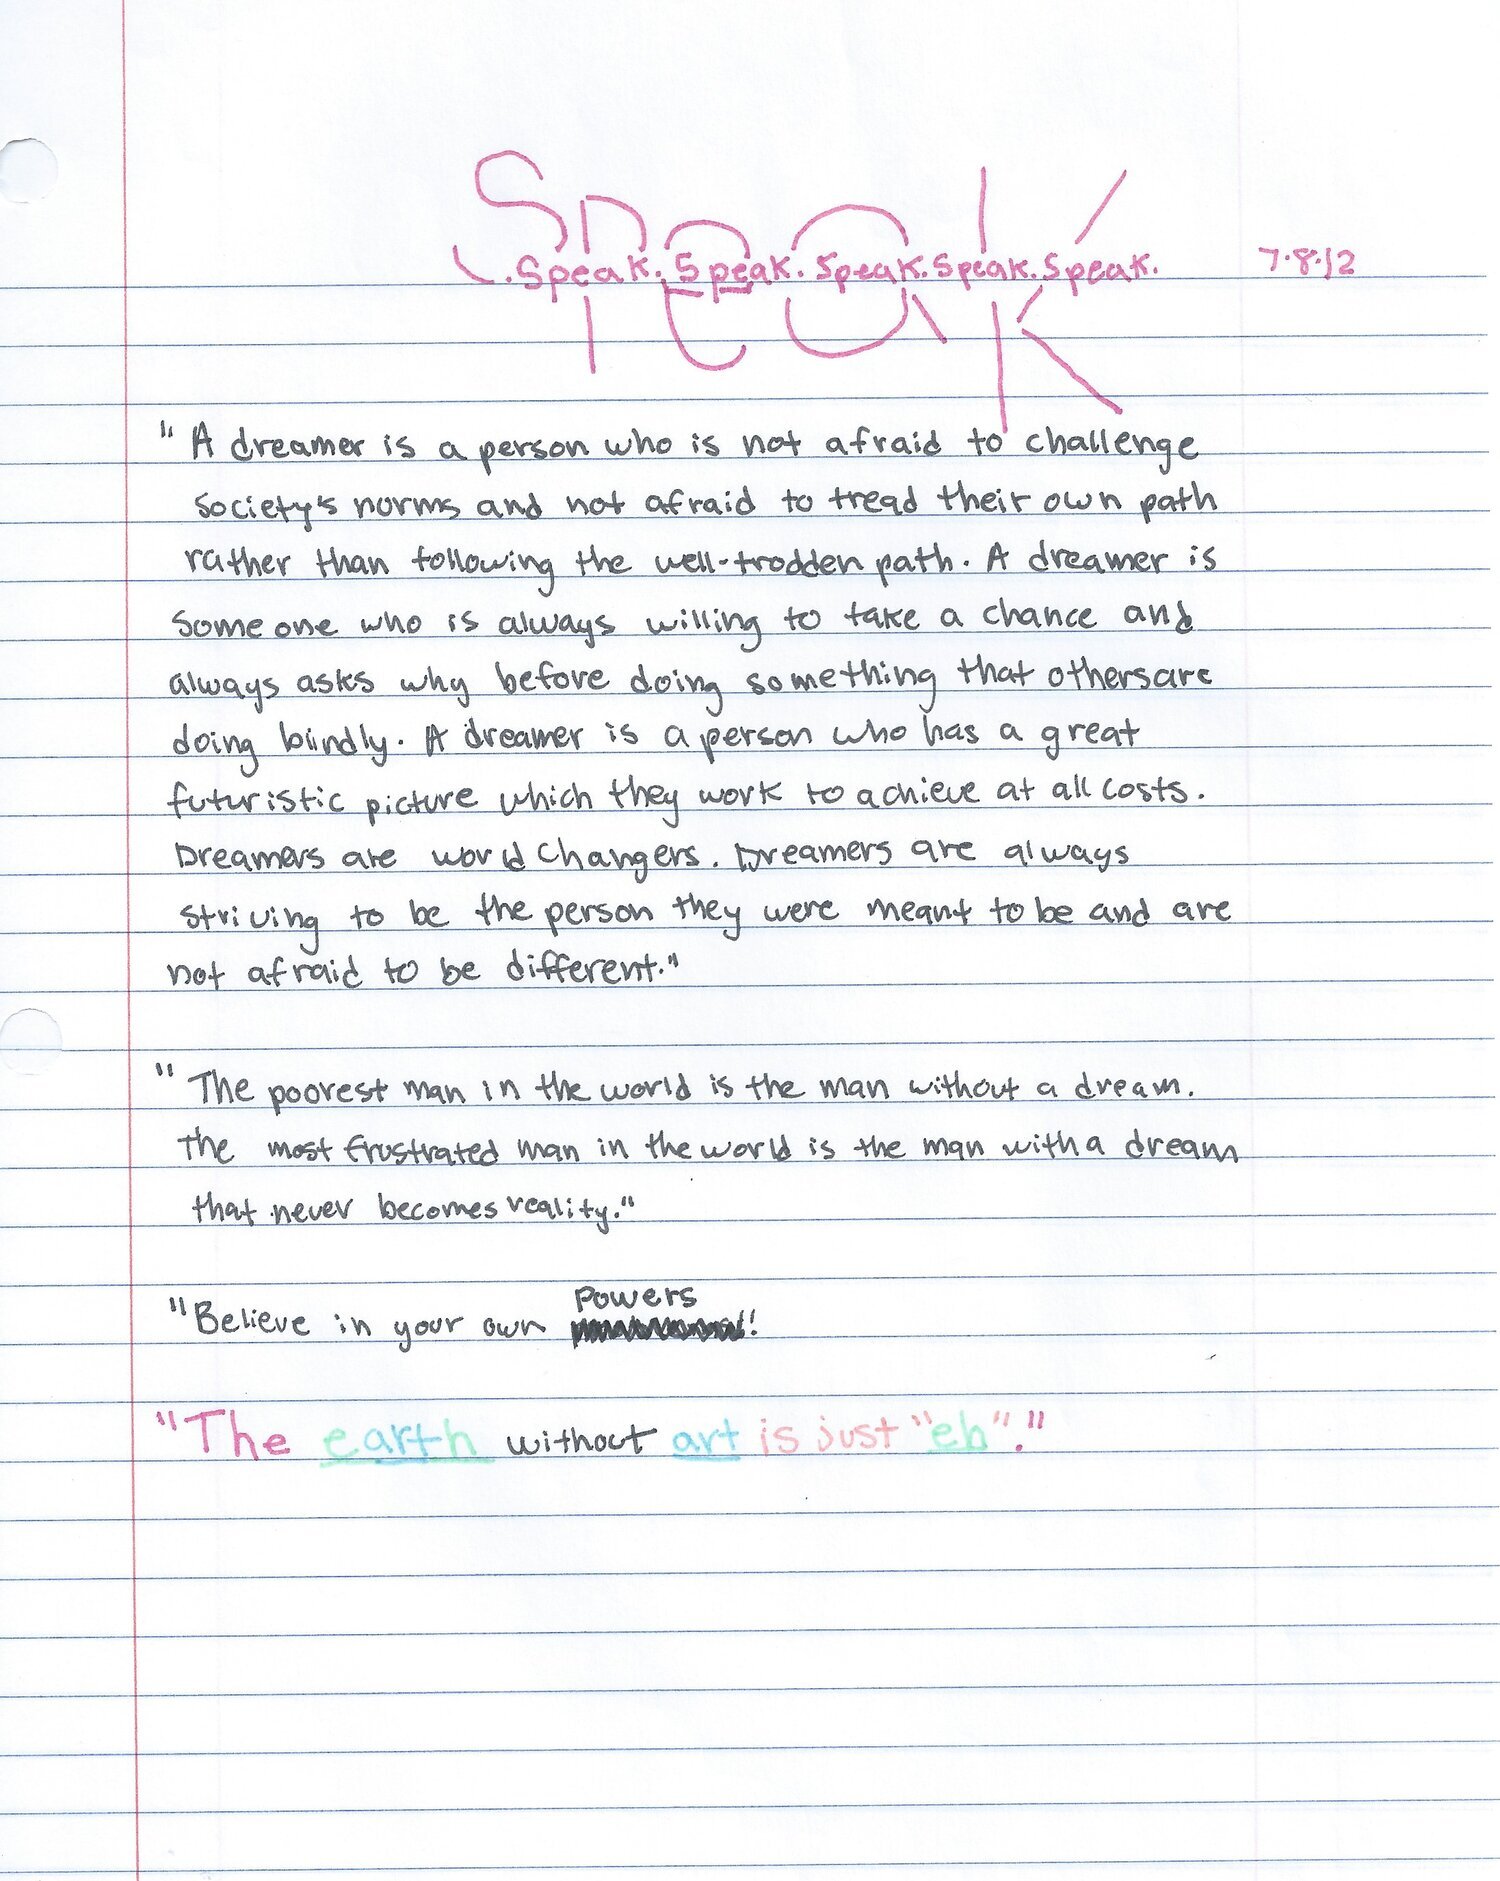 Speak
.Speak. Speak. Speak. Speak. Speak. 7.8.12
"A dreamer is a person who is not afraid to challenge
society's norms and not afraid to tread their own path
rather than following the well-trodden path. A dreamer is
someone who is always willing to take a chance and
always asks why before doing something that others are
doing blindly. A dreamer is a person who has a great
futuristic picture which they work to achieve at all costs.
Dreamers are world changers. Dreamers are always
striving to be the person they were meant to be and are
not afraid to be different."
"The poorest man in the world is the man without a dream.
The most frustrated man in the world is the man with a dream
that never becomes reality."
Powers
"Believe in your own !"
"The earth without art is just "eh"."